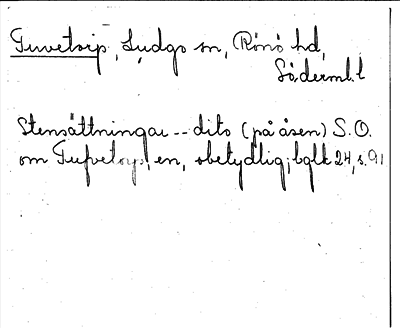 Tuvetorp, Ludgo sn, Rönö hd,
Söderml. l
Stensättningar -- dito (på åsen) S.O.
om Tufvetorp, en, obetydlig; bglk 24, s. 91